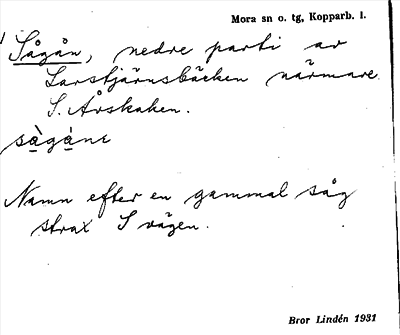 Mora sn o. tg, Kopparb. l.
Sågån, nedre parti av
Larstjärnsbäcken närmare
S. Årskaken.
sàgàne
Namn efter en gammal såg
strax S vägen.
Bror Lindén 1931